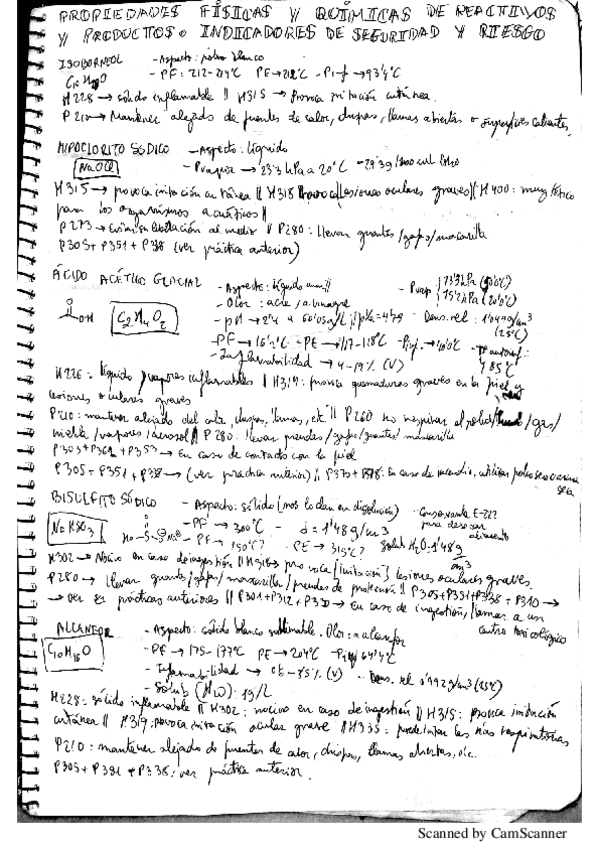 PROPIEDADES FÍSICAS Y QUÍMICAS DE REACTIVOS
Y PRODUCTOS. INDICADORES DE SEGURIDAD Y RIESGO
ISOBORNEOL - Aspecto: polvo blanco
- PF: 212-214ºC PE → 212ºC - Pinf → 93'4ºC
H228 → sólido inflamable || H315 → Provoca irritación cutánea.
P210 → Mantener alejado de fuentes de calor, chispas, llamas abiertas o superficies calientes.
HIPOCLORITO SÓDICO - Aspecto: líquido
NaOCl - Pvapor → 23'3 hPa a 20ºC
H315 → provoca irritación cutánea || H318 Provoca lesiones oculares graves || H400: muy tóxico
para los organismos acuáticos ||
P273 → Evitar su liberación al medio || P280: llevar guantes/gafas/mascarilla
P305 + P351 + P338 (ver práctica anterior)
ÁCIDO ACÉTICO GLACIAL - Aspecto: líquido
- Olor: acre, a vinagre
OH C2H4O2
- Pvap
- Dens. rel: 1'04 g/cm3
(25ºC)
- PF → 16'4ºC - PE → 117-118ºC - Pinf. → 40ºC
485ºC
- Inflamabilidad → 4-19% (V)
H226: líquido y vapores inflamables || H314: provoca quemaduras graves en la piel y
lesiones oculares graves
P210: mantener alejado del calor, chispas, llamas, etc. || P260 no respirar el polvo/humo/gas/
niebla/vapores/aerosol || P280: llevar prendas/gafas/guantes/mascarilla
P303 + P361 + P353 → En caso de contacto con la piel
P305 + P351 + P338 → (ver práctica anterior) || P370 + P378: En caso de incendio, utilizar polvo seco o arena
seca
BISULFITO SÓDICO - Aspecto: sólido (nos lo dan en disolución) - Conservante E-222
NaHSO3 - PF → 300ºC - d = 1'48 g/cm3
- PF → 150ºC? - PE → 315ºC?
H302 → Nocivo en caso de ingestión || H318 → provoca lesiones oculares graves
P280 → llevar guantes/gafas/mascarilla/prendas de protección || P305 + P351 + P338 + P310 →
→ ver en prácticas anteriores || P301 + P312 + P330 → En caso de ingestión, llamar a un
centro toxicológico
ALCANFOR - Aspecto: sólido blanco sublimable. Olor: a alcanfor
C10H16O - PF → 175-177ºC PE → 204ºC - Pinf 64'4ºC
- Inflamabilidad → - Dens. rel 0'992 g/cm3 (25ºC)
- Solub (H2O): 1g/L
H228: sólido inflamable || H302: nocivo en caso de ingestión || H315: provoca irritación
cutánea || P319: provoca irritación ocular grave || H335: puede irritar las vías respiratorias
P210: mantener alejado de fuentes de calor, chispas, llamas abiertas, etc.
P305 + P351 + P338: ver práctica anterior.
Scanned by CamScanner